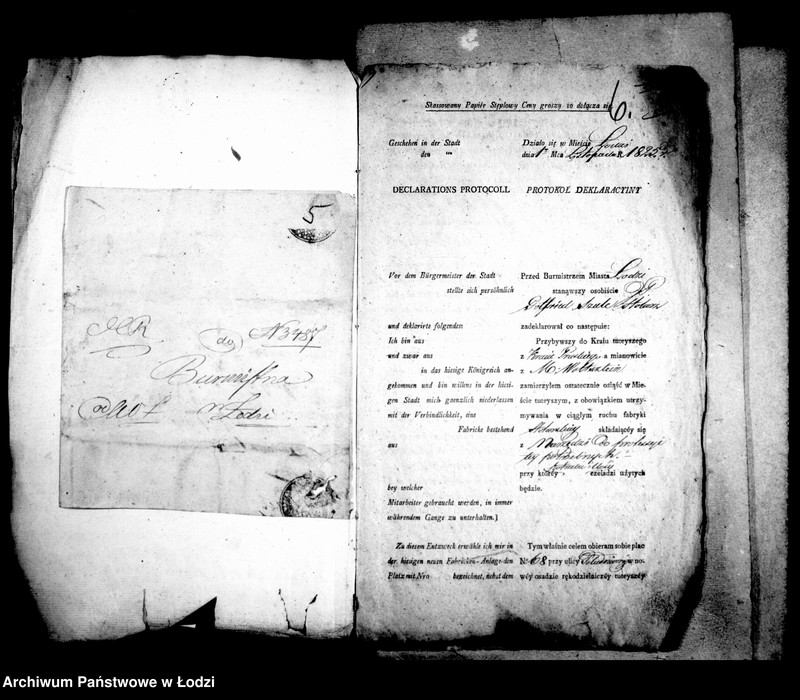 5
JKR
do
N 3487
Burmistrza
w Łodzi
6.
Skassowany Papiér Stęplowy Ceny groszy 10 dołącza się
Geschehen in der Stadt
den
Działo się w Mieście Łodzi
dnia 1 Mca Listopada R. 1825
DECLARATIONS PROTOCOLL
PROTOKÓŁ DEKLARACYINY
Vor dem Bürgermeister der Stadt
stellte sich persöhnlich
und deklarirte folgendes
Ich bin aus
und zwar aus
in das hiesige Königreich an-
gekommen und bin willens in der hiesi-
gen Stadt mich gaenzlich niederlassen
mit der Verbindlichkeit, eine
Fabricke bestehend
aus
bey welcher
Mitarbeiter gebraucht werden, in immer
währendem Gange zu unterhalten.)
Zu diesem Entzweck erwähle ich mir in
der hiesigen neuen Fabricken-Anlage den
Platz mit Nro bezeichnet, nebst dem
Przed Burmistrzem Miasta Łodzi
stanąwszy osobiście
zadeklarował co następuie:
Przybywszy do Kraiu tuteyszego
z a mianowicie
z M.
zamierzyłem ostatecznie osiąść w Mie-
ście tuteyszym, z obowiązkiem utrzy-
mywania w ciągłym ruchu fabryki
składaiącéy się
z Narzędzi do
potrzebnych
przy któréy czeladzi użytych
będzie.
Tym właśnie celem obieram sobie plac
Nr 68 przy ulicy w no-
wéy osadzie rękodzielniczéy tuteyszéy
Archiwum Państwowe w Łodzi